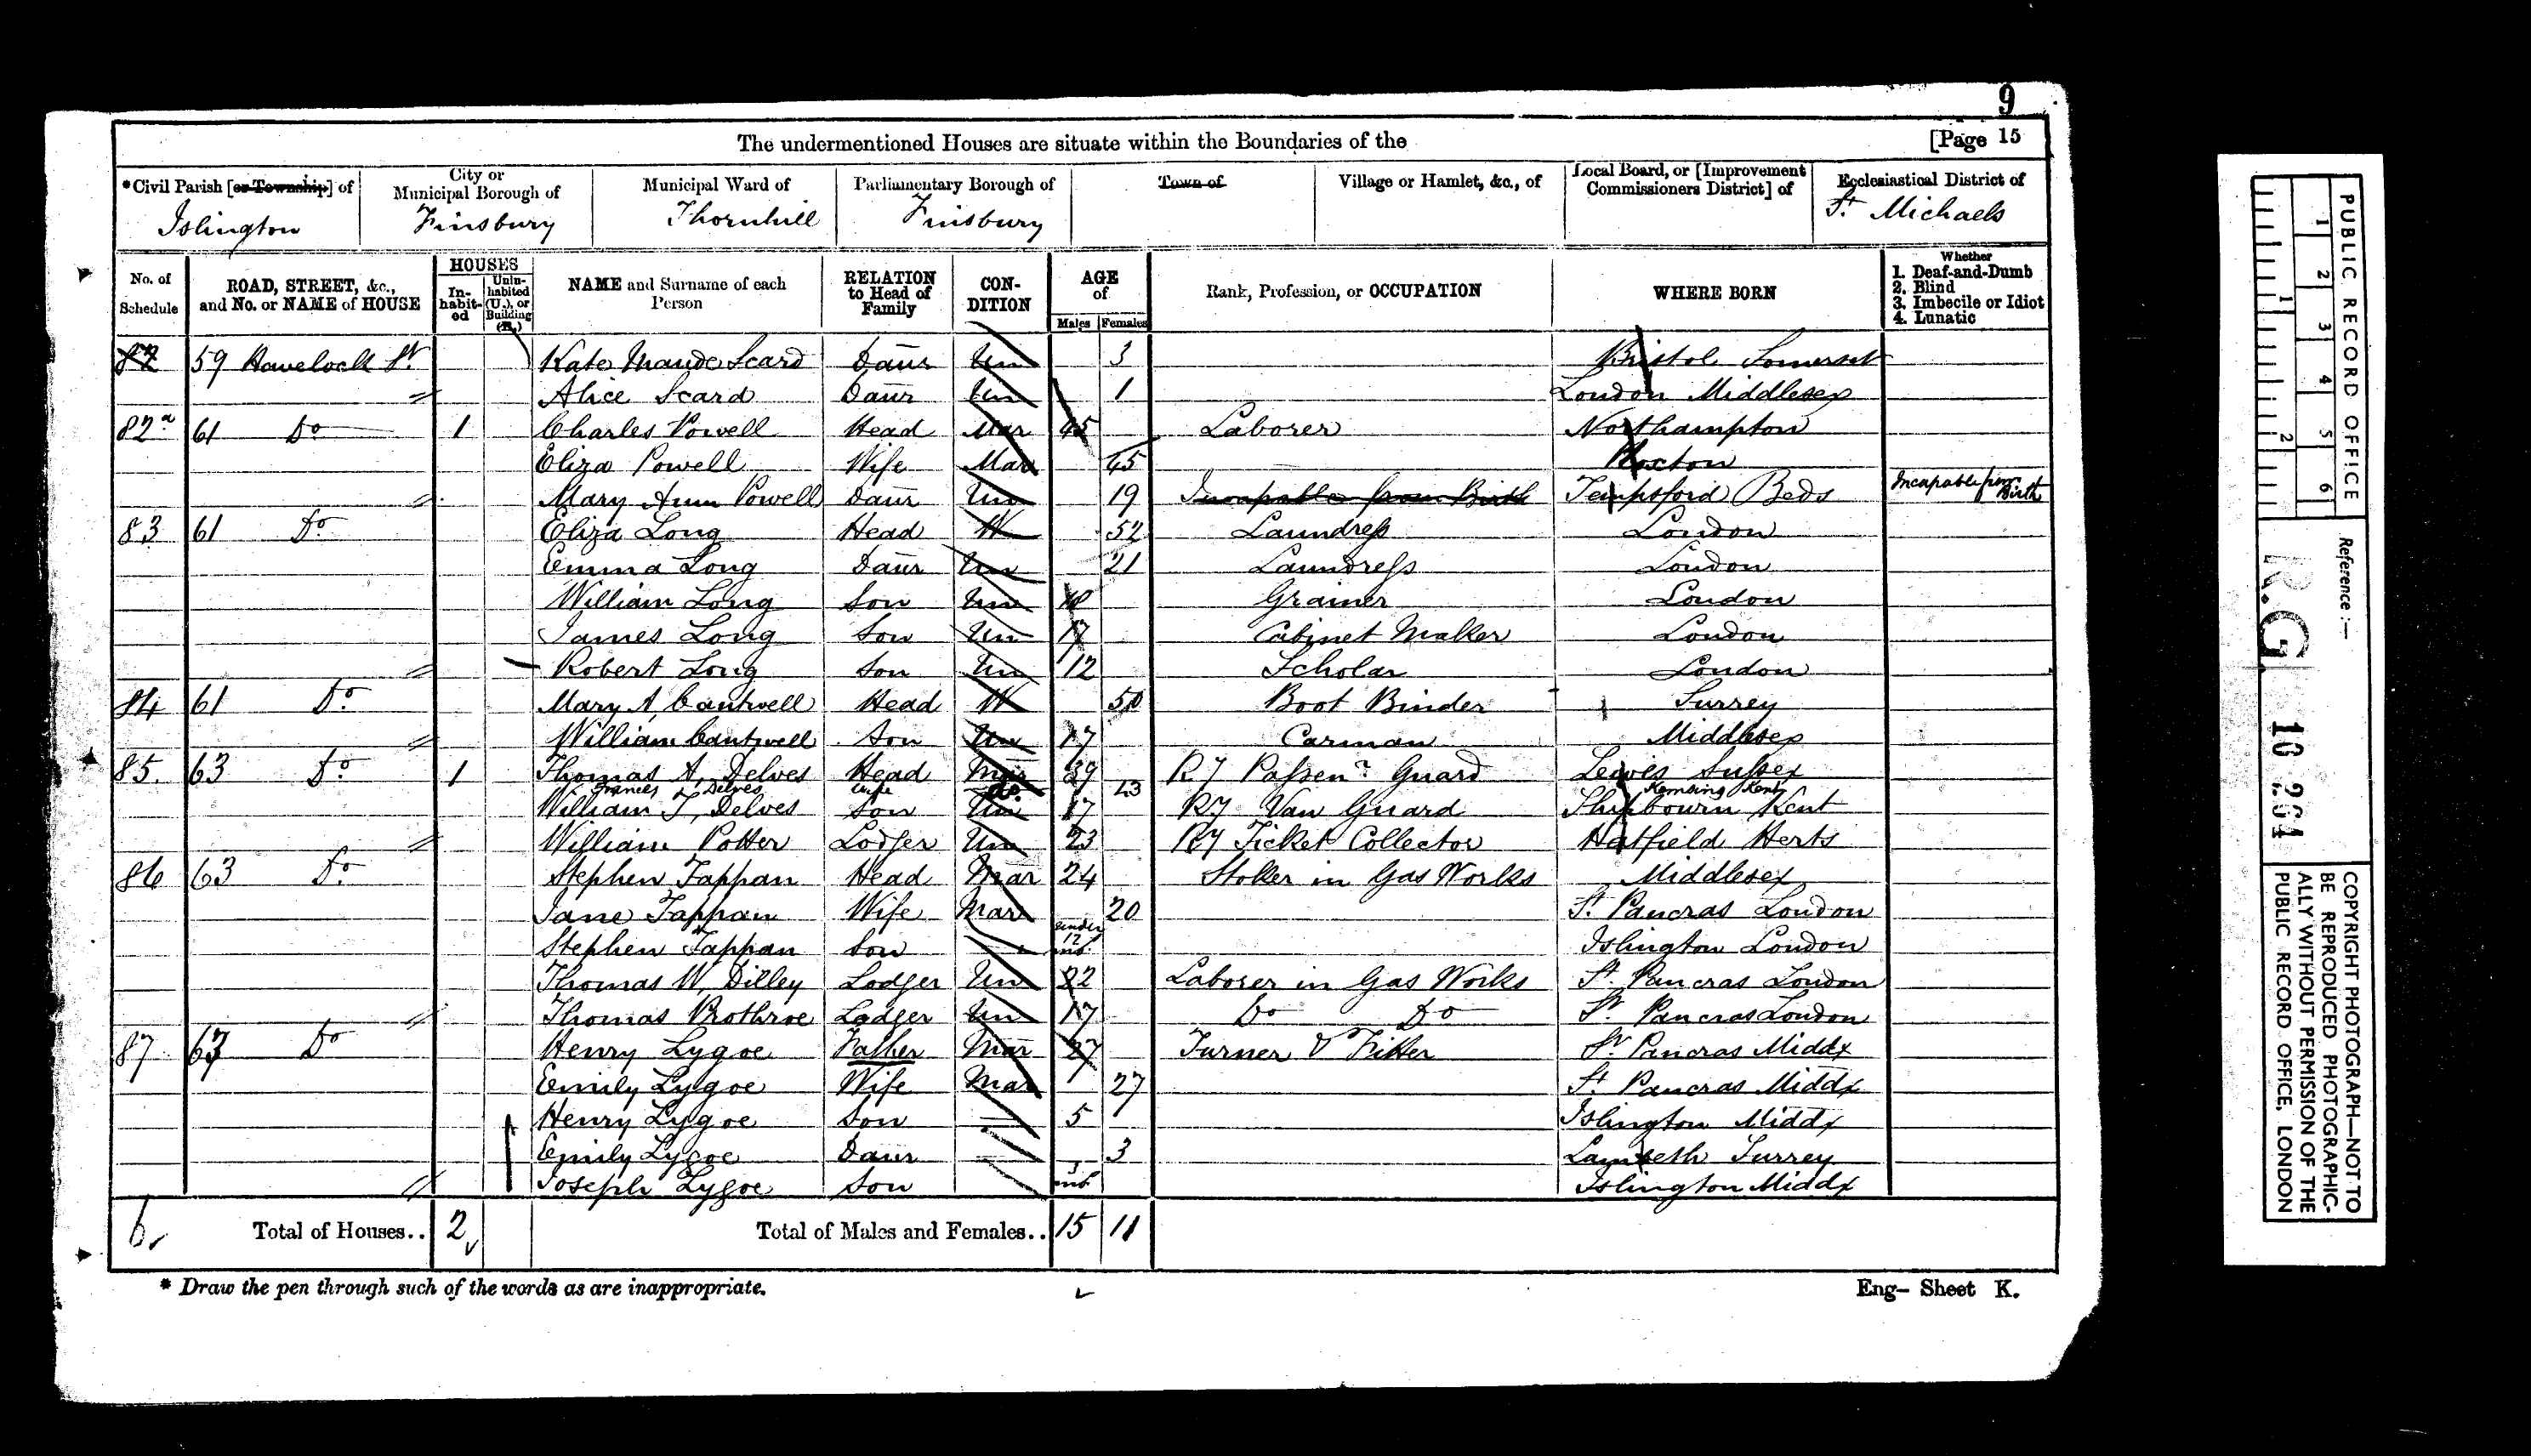 9
The undermentioned Houses are situate within the Boundaries of the [Page 15
*Civil Parish [or Township] of City or Municipal Borough of Municipal Ward of Parliamentary Borough of Town of Village or Hamlet, &c., of Local Board, or [Improvement Commissioners District] of Ecclesiastical District of
Islington Finsbury Thornhill Finsbury St. Michaels
No. of Schedule ROAD, STREET, &c., and No. or NAME of HOUSE HOUSES Inhabited Uninhabited (U.), or Building (B.) NAME and Surname of each Person RELATION to Head of Family CONDITION AGE of Males Females Rank, Profession, or OCCUPATION WHERE BORN Whether 1. Deaf-and-Dumb 2. Blind 3. Imbecile or Idiot 4. Lunatic
82 59 Havelock St. Kate Maude Scard Daur Un 3 Bristol Somerset
Alice Scard Daur Un 1 London Middlesex
82a 61 Do 1 Charles Powell Head Mar 45 Laborer Northampton
Eliza Powell Wife Mar 45 Roxton
Mary Ann Powell Daur Un 19 Incapable from Birth Tempsford Beds Incapable from Birth
83 61 Do Eliza Long Head W 52 Laundress London
Emma Long Daur Un 21 Laundress London
William Long Son Un 18 Grainer London
James Long Son Un 17 Cabinet Maker London
Robert Long Son Un 12 Scholar London
84 61 Do Mary A, Cantwell Head W 50 Boot Binder Surrey
William Cantwell Son Un 17 Carman Middlesex
85 63 Do 1 Thomas A, Delves Head Mar 39 Ry Passenr Guard Lewes Sussex
Frances Delves Wife do. 43 Kemsing Kent
William T, Delves Son Un 17 Ry Van Guard Shipbourn Kent
William Potter Lodger Un 23 Ry Ticket Collector Hatfield Herts
86 63 Do Stephen Tappan Head Mar 24 Stoker in Gas Works Middlesex
Jane Tappan Wife Mar 20 St. Pancras London
Stephen Tappan Son under 12 mo. Islington London
Thomas W, Dilley Lodger Un 22 Laborer in Gas Works St. Pancras London
Thomas Prothroe Lodger Un 17 Do Do St. Pancras London
87 63 Do Henry Lygoe Father Mar 27 Turner & Fitter St. Pancras Middx
Emily Lygoe Wife Mar 27 St. Pancras Middx
Henry Lygoe Son 5 Islington Middx
Emily Lygoe Daur 3 Lambeth Surrey
Joseph Lygoe Son 3 mo. Islington Middx
6 Total of Houses.. 2 Total of Males and Females.. 15 11
* Draw the pen through such of the words as are inappropriate. Eng- Sheet K.
PUBLIC RECORD OFFICE
1 2 3 4 5 6
1 2
Reference :-
R.G. 10 264
COPYRIGHT PHOTOGRAPH—NOT TO
BE REPRODUCED PHOTOGRAPHIC-
ALLY WITHOUT PERMISSION OF THE
PUBLIC RECORD OFFICE, LONDON